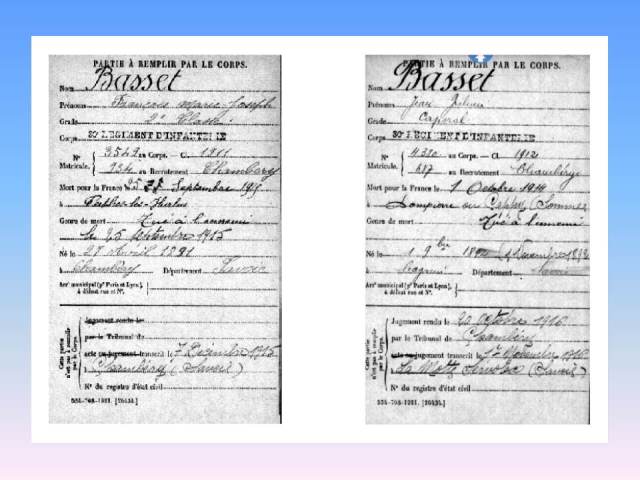 PARTIE À REMPLIR PAR LE CORPS.
Nom Basset
Prénoms François Marie-Joseph
Grade 2e Classe
Corps 30e REGIMENT D'INFANTERIE
N° 3549 au Corps. — Cl. 1911
Matricule. 934 au Recrutement Chambéry
Mort pour la France le 25 Septembre 1915
à
Genre de mort Tué à l'ennemi
le 25 Septembre 1915
Né le 27 Avril 1891
à Chambéry Département Savoie
Arrt municipal (pr Paris et Lyon),
à défaut rue et N°.
Cette partie n'est pas à remplir par le Corps.
Jugement rendu le
par le Tribunal de
acte ou jugement transcrit le 7 Décembre 1915
à Chambéry (Savoie)
N° du registre d'état civil
534-708-1921. [26434.]
PARTIE À REMPLIR PAR LE CORPS.
Nom Basset
Prénoms Jean
Grade Caporal
Corps 30e REGIMENT D'INFANTERIE
N° 4320 au Corps. — Cl. 1912
Matricule. 687 au Recrutement Chambéry
Mort pour la France le 1 Octobre 1914
à Dompierre ou Cappy (Somme)
Genre de mort Tué à l'ennemi
Né le 1 9bre 1892
à Département Savoie
Arrt municipal (pr Paris et Lyon),
à défaut rue et N°.
Cette partie n'est pas à remplir par le Corps.
Jugement rendu le 20 Octobre 1916
par le Tribunal de Chambéry
acte ou jugement transcrit le 1916
à La Motte Servolex (Savoie)
N° du registre d'état civil
534-708-1921. [26434.]